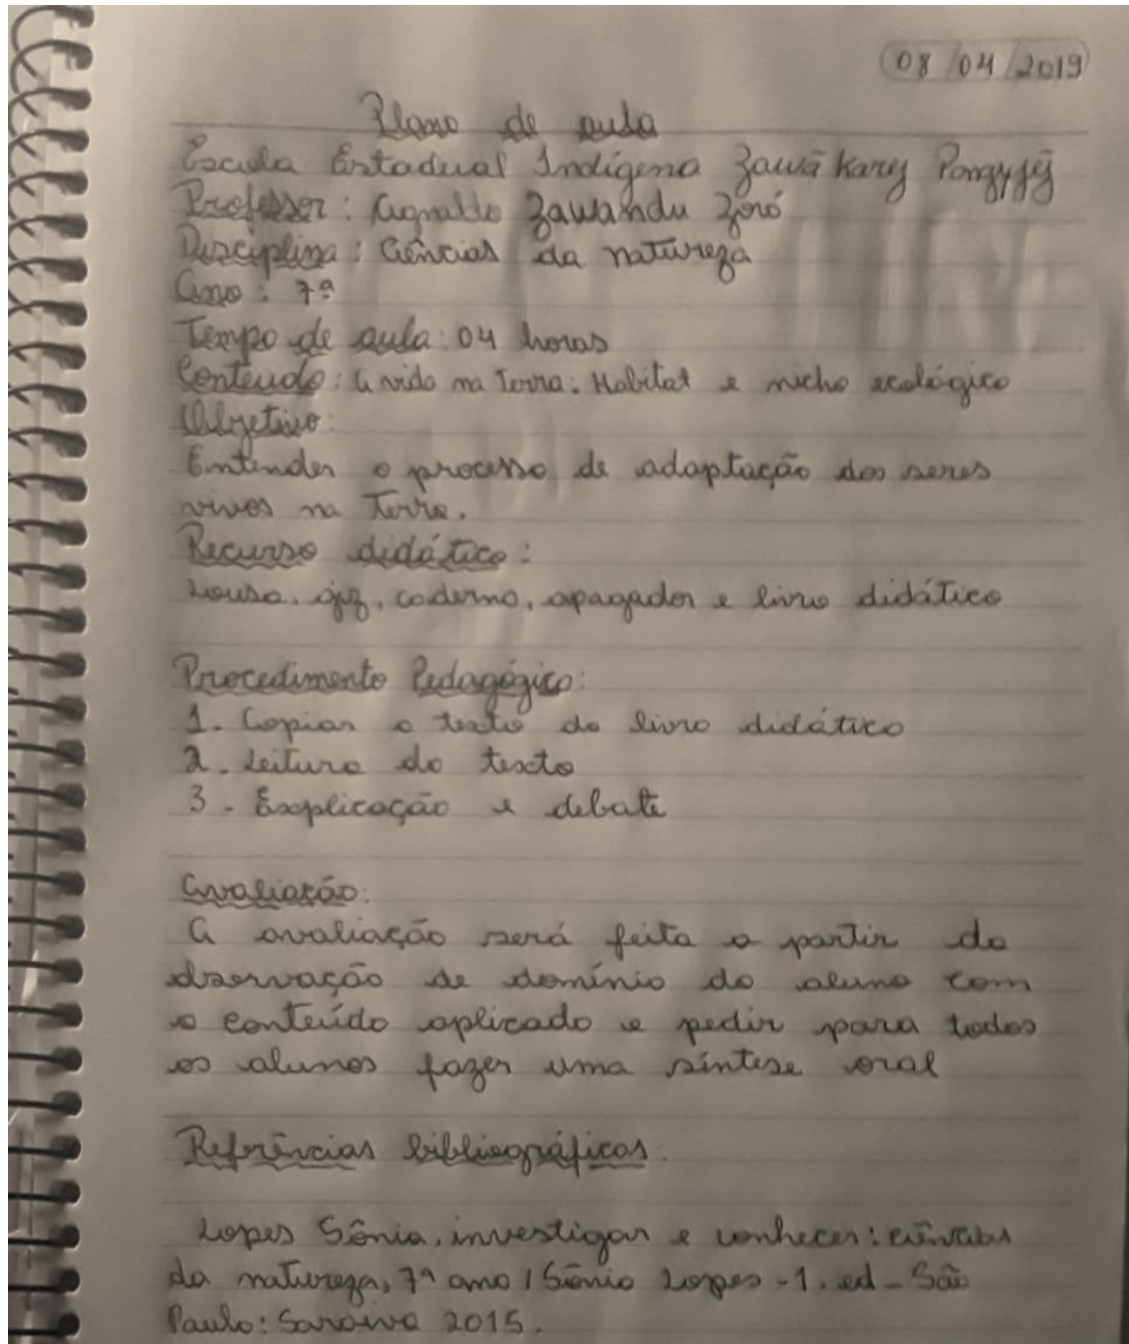 08/04/2019
Plano de aula
Escola Estadual Indígena Zawã Karej Pangyjẽj
Professor: Agnaldo Zawandu Zoró
Disciplina: Ciências da natureza
Ano: 7º
Tempo de aula: 04 horas
Conteudo: A vida na Terra: Habitat e nicho ecológico
Objetivo:
Entender o processo de adaptação dos seres
vivos na Terra.
Recurso didático:
Lousa, giz, caderno, apagador e livro didático
Procedimento Pedagógico:
1. Copiar o texto do livro didático
2. Leitura do texto
3 - Explicação e debate
Avaliação:
A avaliação será feita a partir da
observação de domínio do aluno com
o conteúdo aplicado e pedir para todos
os alunos fazer uma síntese oral
Referências bibliográficas:
Lopes Sônia, investigar e conhecer: ciências
da natureza, 7º ano / Sônia Lopes - 1. ed - São
Paulo: Saraiva 2015.